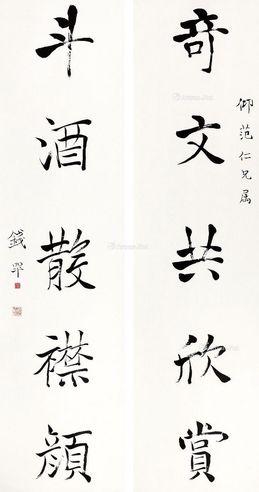 奇文共欣賞
仰范仁兄属
斗酒散襟顔
錢罕